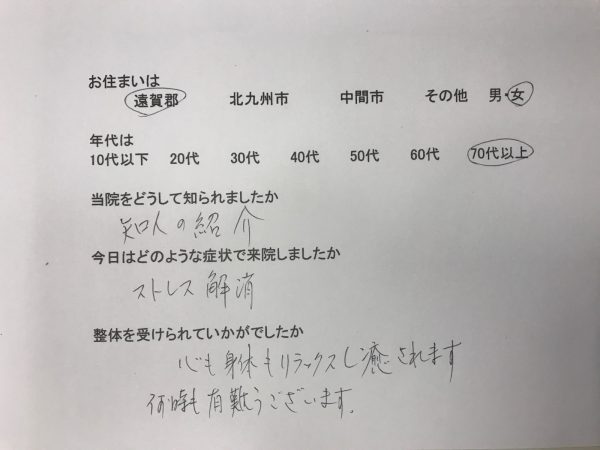 お住まいは
遠賀郡 北九州市 中間市 その他 男・女
年代は
10代以下 20代 30代 40代 50代 60代 70代以上
当院をどうして知られましたか
知人の紹介
今日はどのような症状で来院しましたか
ストレス解消
整体を受けられていかがでしたか
心も身体もリラックスし癒されます
何時も有難うございます。